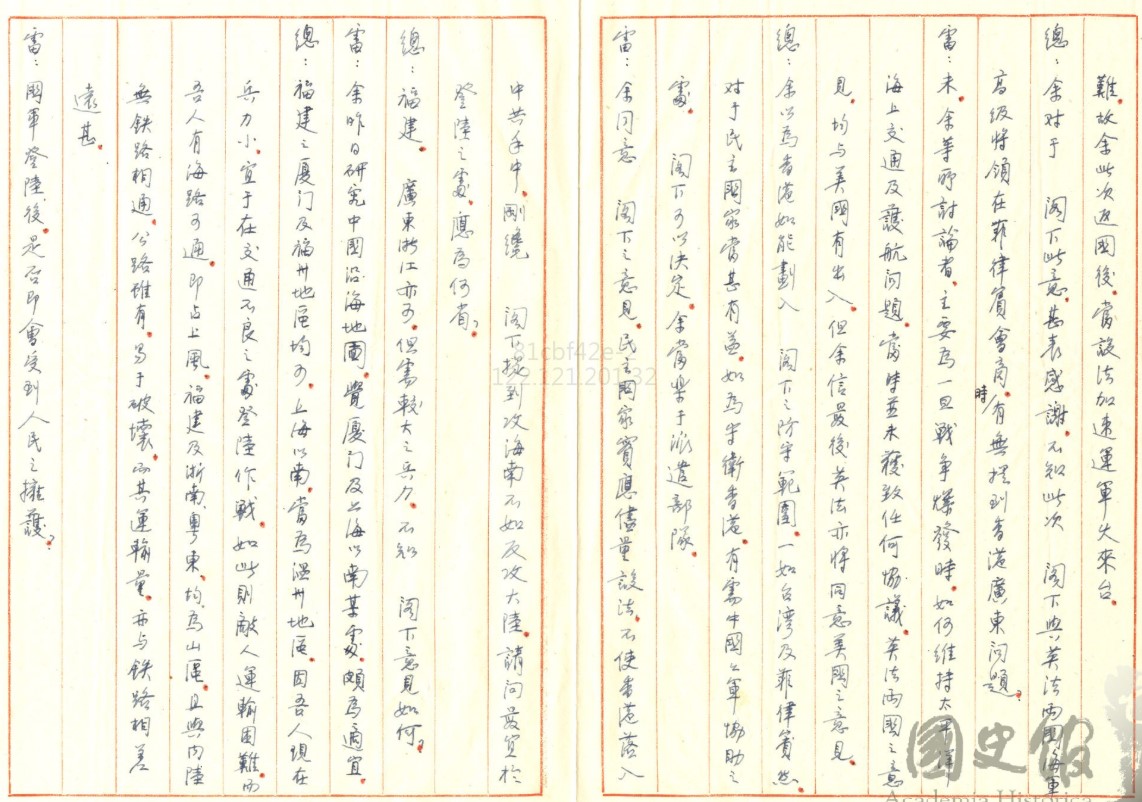 難。故余此次返國後。當設法加速運軍火來台。
總：余対于　閣下此意。甚表感謝。不知此次　閣下與英法两国海軍
高級將領在菲律賓會商時。有無提到香港廣東问題？
雷：未。余等所討論者。主要為一旦戰争爆發時。如何維持太平洋
海上交通及護航问題。當時並未獲致任何協議。英法两國之意
見。均与美國有出入。但余信最後英法亦将同意美國之意見。
總：余以為香港如能劃入　閣下之防守範圍。一如台湾及菲律賓然
対于民主國家當甚有益。如為守衛香港。有需中國之軍協助之
處。　閣下可以決定。余當樂于派遣部隊。
雷：余同意　閣下之意見。民主國家實應儘量設法。不使香港落入
中共手中。剛纔　閣下提到攻海南不如反攻大陸。請问最宜於
登陸之處。應為何省？
總：福建。　廣東浙江亦可。但需較大之兵力。不知　閣下意見如何？
雷：余昨日研究中國沿海地圖。覺厦门及上海以南某處。頗為適宜
總：福建之厦门及福州地區均可。上海以南。當為温州地區。因吾人現在
兵力小。宜于在交通不良之處登陸作戰。如此則敵人運輸困難。而
吾人有海路可通。即占上風。福建及浙南。粤東。均為山區。且與内陸
無鉄路相通。公路雖有。易于破壞。而其運輸量。亦与鉄路相差
遠甚。
雷：國軍登陸後。是否即會受到人民之擁護？
81cbf42e-
122.121.201.32
國史館
Academia Historica